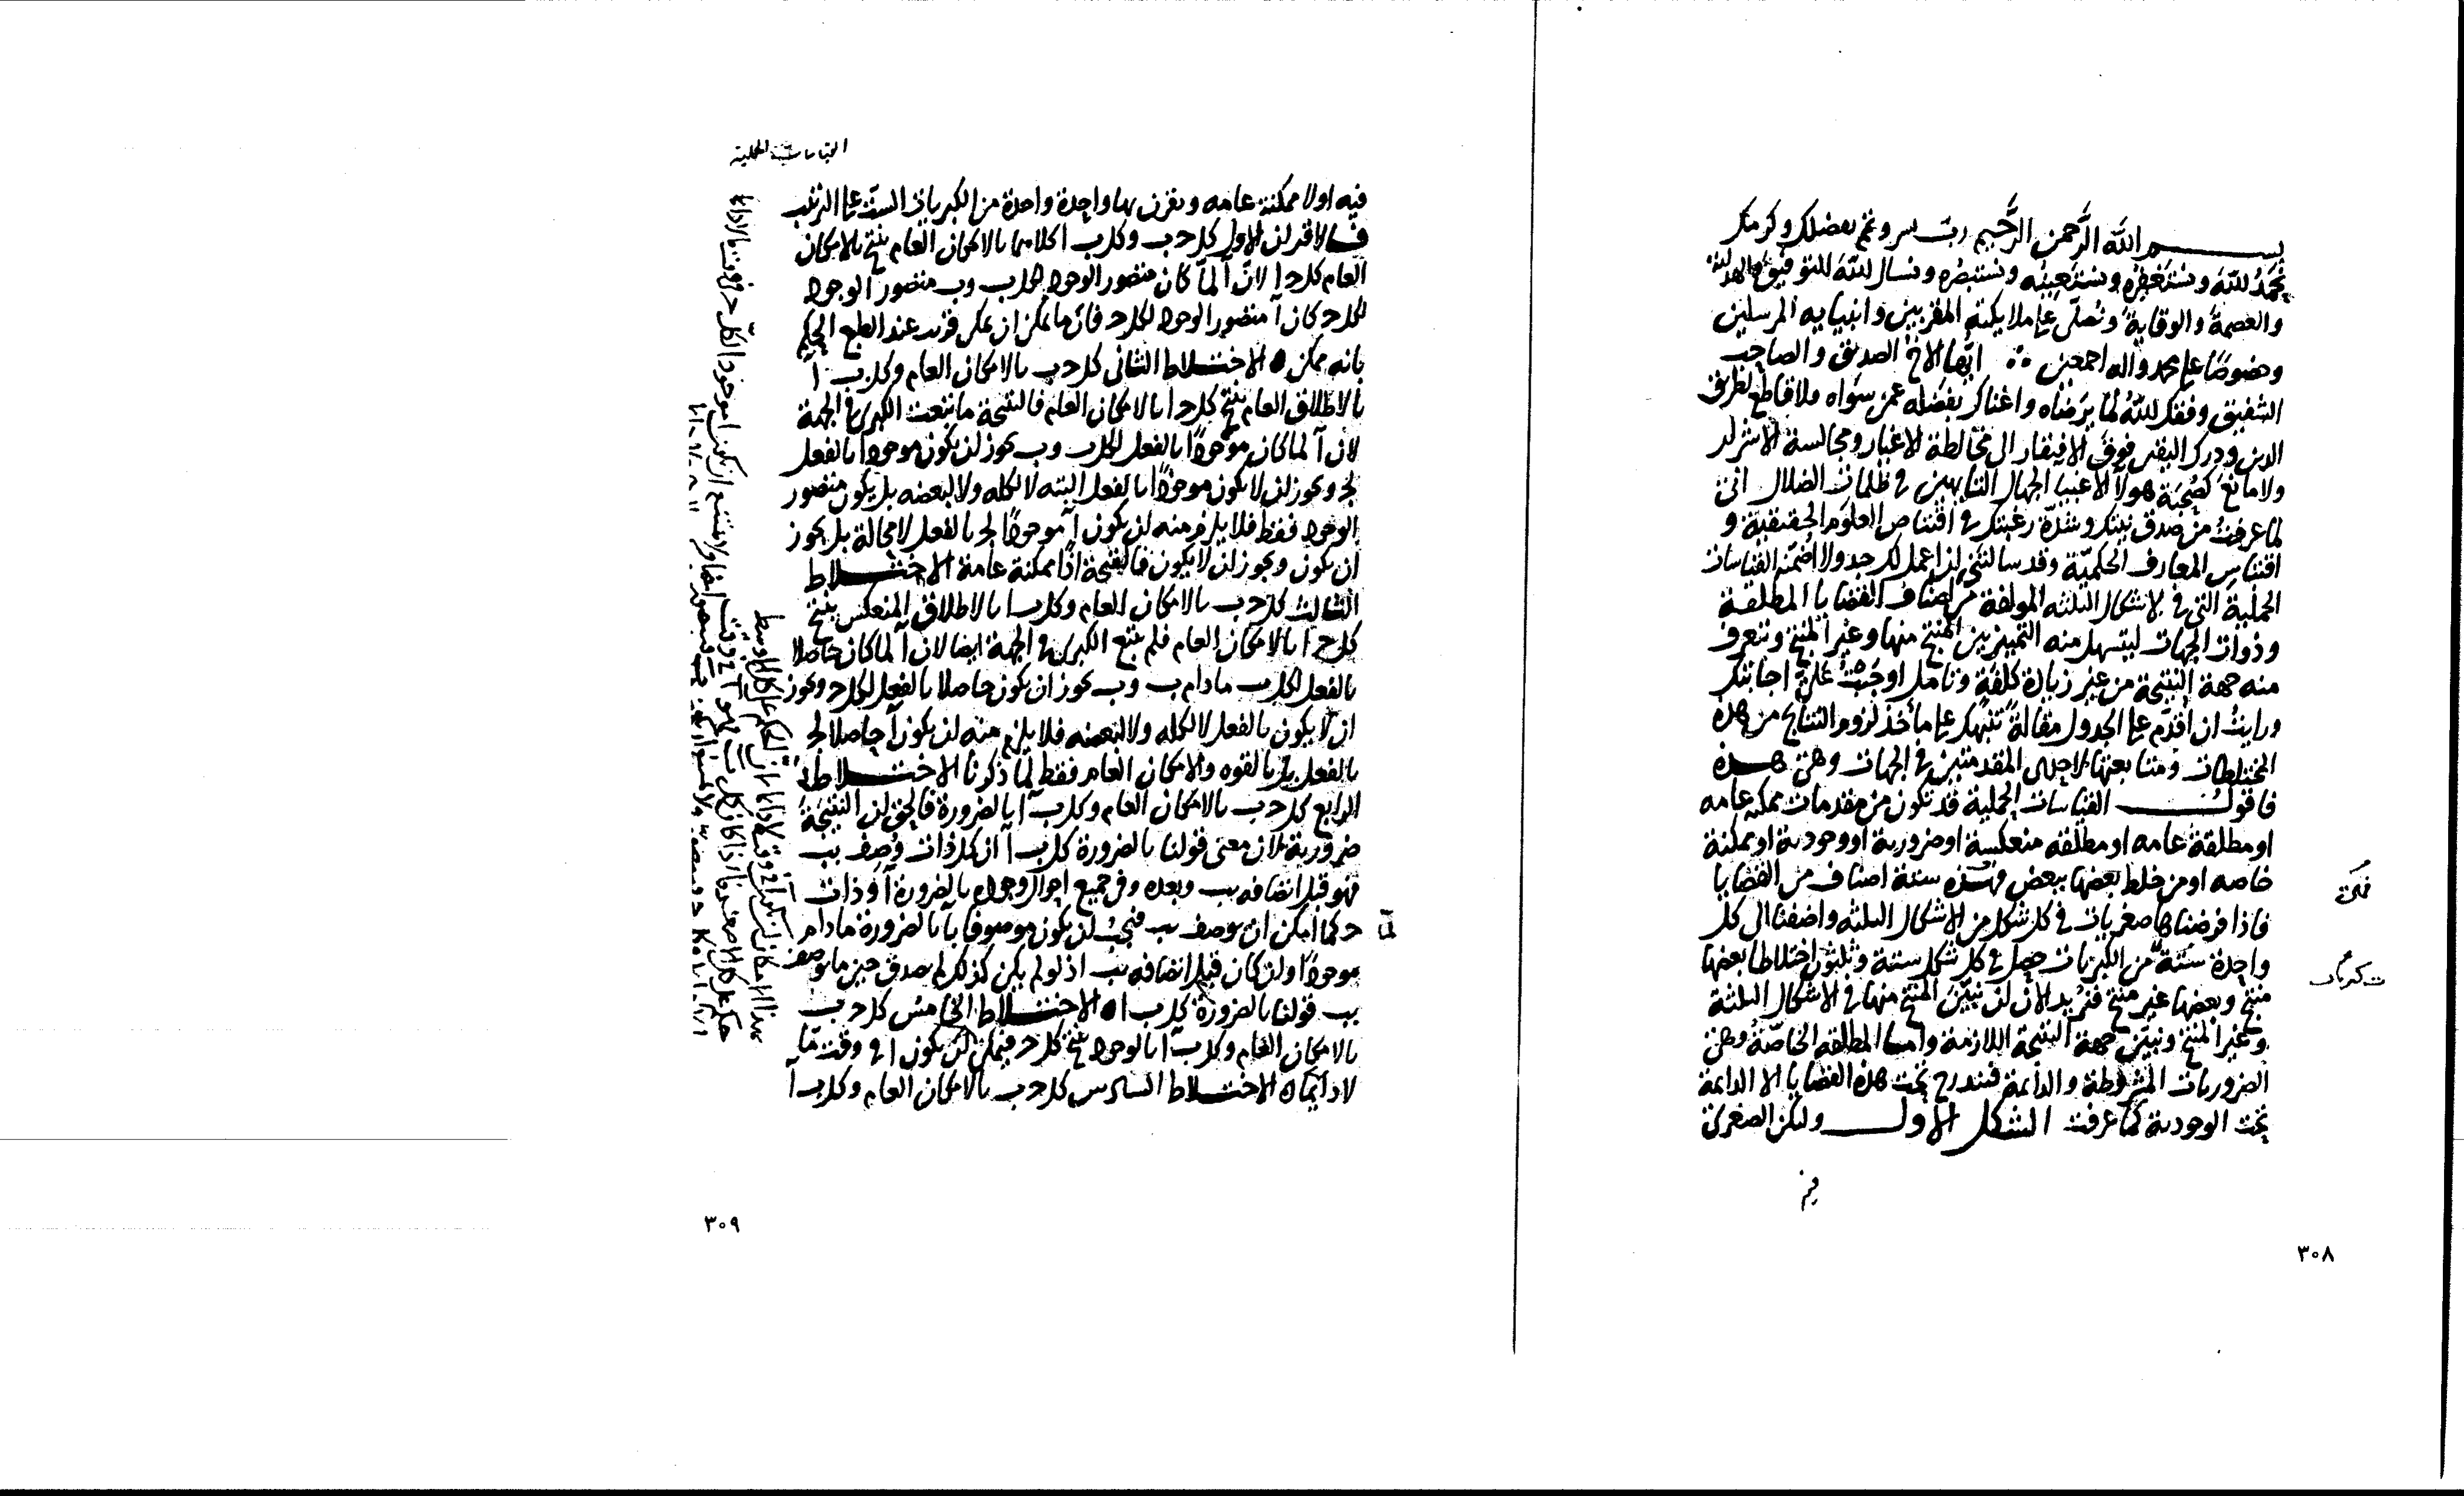 بسم الله الرحمن الرحيم رب يسر وتمم بفضلك وكرمك
نحمد الله ونستغفره ونستعينه ونستنصره ونسال الله التوفيق والهداية
والعصمة والوقاية ونصلى على ملايكته المقربين وانبيايه المرسلين
وخصوصًا على محمد واله اجمعين ايها الاخ الصديق والصاحب
الشفيق وفقك الله لما يرضاه واغناك بفضله عمن سواه ولا قاطع لطريق
الدين ودرك اليقين فوق الافتقار الى مخالطة الاغيار ومجالسة الاشرار
ولا مانع كصحبة هولا الاغبيا الجهال التايهين فى ظلمات الضلال انى
لما عرفت من صدق نيتك وشدة رغبتك فى اقتناص العلوم الحقيقية و
اقتباس المعارف الحكمية وقد سالتنى ان اعمل لك جدولا اضمنه القياسات
الحملية التى فى الاشكال الثلثه المولفة من اصناف القضايا المطلقة
وذوات الجهات ليتسهل منه التمييز بين المنتج منها وغير المنتج وتتعرف
منه جهة النتيجة من غير زيادة كلفة وتامل اوجبت على اجابتك
ورايت ان اقدم على الجدول مقالة تنبهك على ماخذ لزوم النتايج من هذه
المختلطات ومتابعتها لاحدى المقدمتين فى الجهات وهى هذه
فاقول القياسات الحملية قد تكون من مقدمات ممكنه عامه
او مطلقة عامه او مطلقه منعكسة او ضرورية او وجودية او ممكنة
خاصه او من خلط بعضها ببعض فهذه ستة اصناف من القضايا
فاذا فرضناها صغريات فى كل شكل من الاشكال الثلثه واضفنا الى كل
واحدة ستة من الكبريات حصل فى كل شكل ستة وثلثون اختلاطا بعضها
منتج وبعضها غير منتج فنريد الان ان نبين المنتج منها فى الاشكال الثلثة
وغير المنتج ونبين جهة النتيجة اللازمة واما المطلقة الخاصة وهى
الضروريات المشروطة والدايمة فتندرج تحت هذه القضايا الا الدايمة
تحت الوجودية كما عرفت الشكل الاول ولتكن الصغرى
فيه
٣٠٨
القياسات الحملية
فيه اولا ممكنة عامه ونقرن بها واحدة واحدة من الكبريات الست على الترتيب
فالاقتران الاول كل ج ب وكل ب ا كلاهما بالامكان العام ينتج بالامكان
العام كل ج ا لان آ لما كان متصور الوجود لكل ب وب متصور الوجود
لكل ج كان آ متصور الوجود لكل ج فان ما يمكن ان يمكن قريب عند الطبع الحكم
بانه ممكن ه الاختلاط الثانى كل ج ب بالامكان العام وكل ب آ
بالاطلاق العام ينتج كل ج ا بالامكان العام فالنتيجة ما تبعت الكبرى فى الجهة
لان آ لما كان موجودًا بالفعل لكل ب وب يجوز ان يكون موجودا بالفعل
لج ويجوز ان لا يكون موجودًا بالفعل البته لا لكله ولا لبعضه بل يكون متصور
الوجود فقط فلا يلزم منه ان يكون آ موجودًا لج بالفعل لا محالة بل يجوز
ان يكون ويجوز ان لا يكون فالنتيجة اذًا ممكنة عامة الاختلاط
الثالث كل ج ب بالامكان العام وكل ب ا بالاطلاق المنعكس ينتج
كل ج آ بالامكان العام فلم تتبع الكبرى فى الجهة ايضا لان آ لما كان حاصلا
بالفعل لكل ب مادام ب وب يجوز ان يكون حاصلا بالفعل لكل ج ويجوز
ان لا يكون بالفعل لا لكله ولا لبعضه فلا يلزم منه ان يكون آ حاصلا لج
بالفعل بل بالقوه والامكان العام فقط لما ذكرنا الاختلاط
الرابع كل ج ب بالامكان العام وكل ب آ بالضرورة فالحق ان النتيجة
ضرورية لان معنى قولنا بالضرورة كل ب آ ان كل ذات وصف بب
فهو قبل اتصافه بب وبعده وفى جميع احوال وجوده بالضرورة آ وذات
ج كما امكن ان يوصف بب فيجب ان يكون موصوفا بآ بالضرورة مادام
موجودًا وان كان قبل اتصافه بب اذ لو لم يكن كذلك لم يصدق حين ما يوصف
بب قولنا بالضرورة كل ب ا ه الاختلاط الخامس كل ج ب
بالامكان العام وكل ب آ بالوجود ينتج كل ج فيمكن ان يكون ا فى وقت ما
لا دايما ه الاختلاط السادس كل ج ب بالامكان العام وكل ب آ
٣٠٩